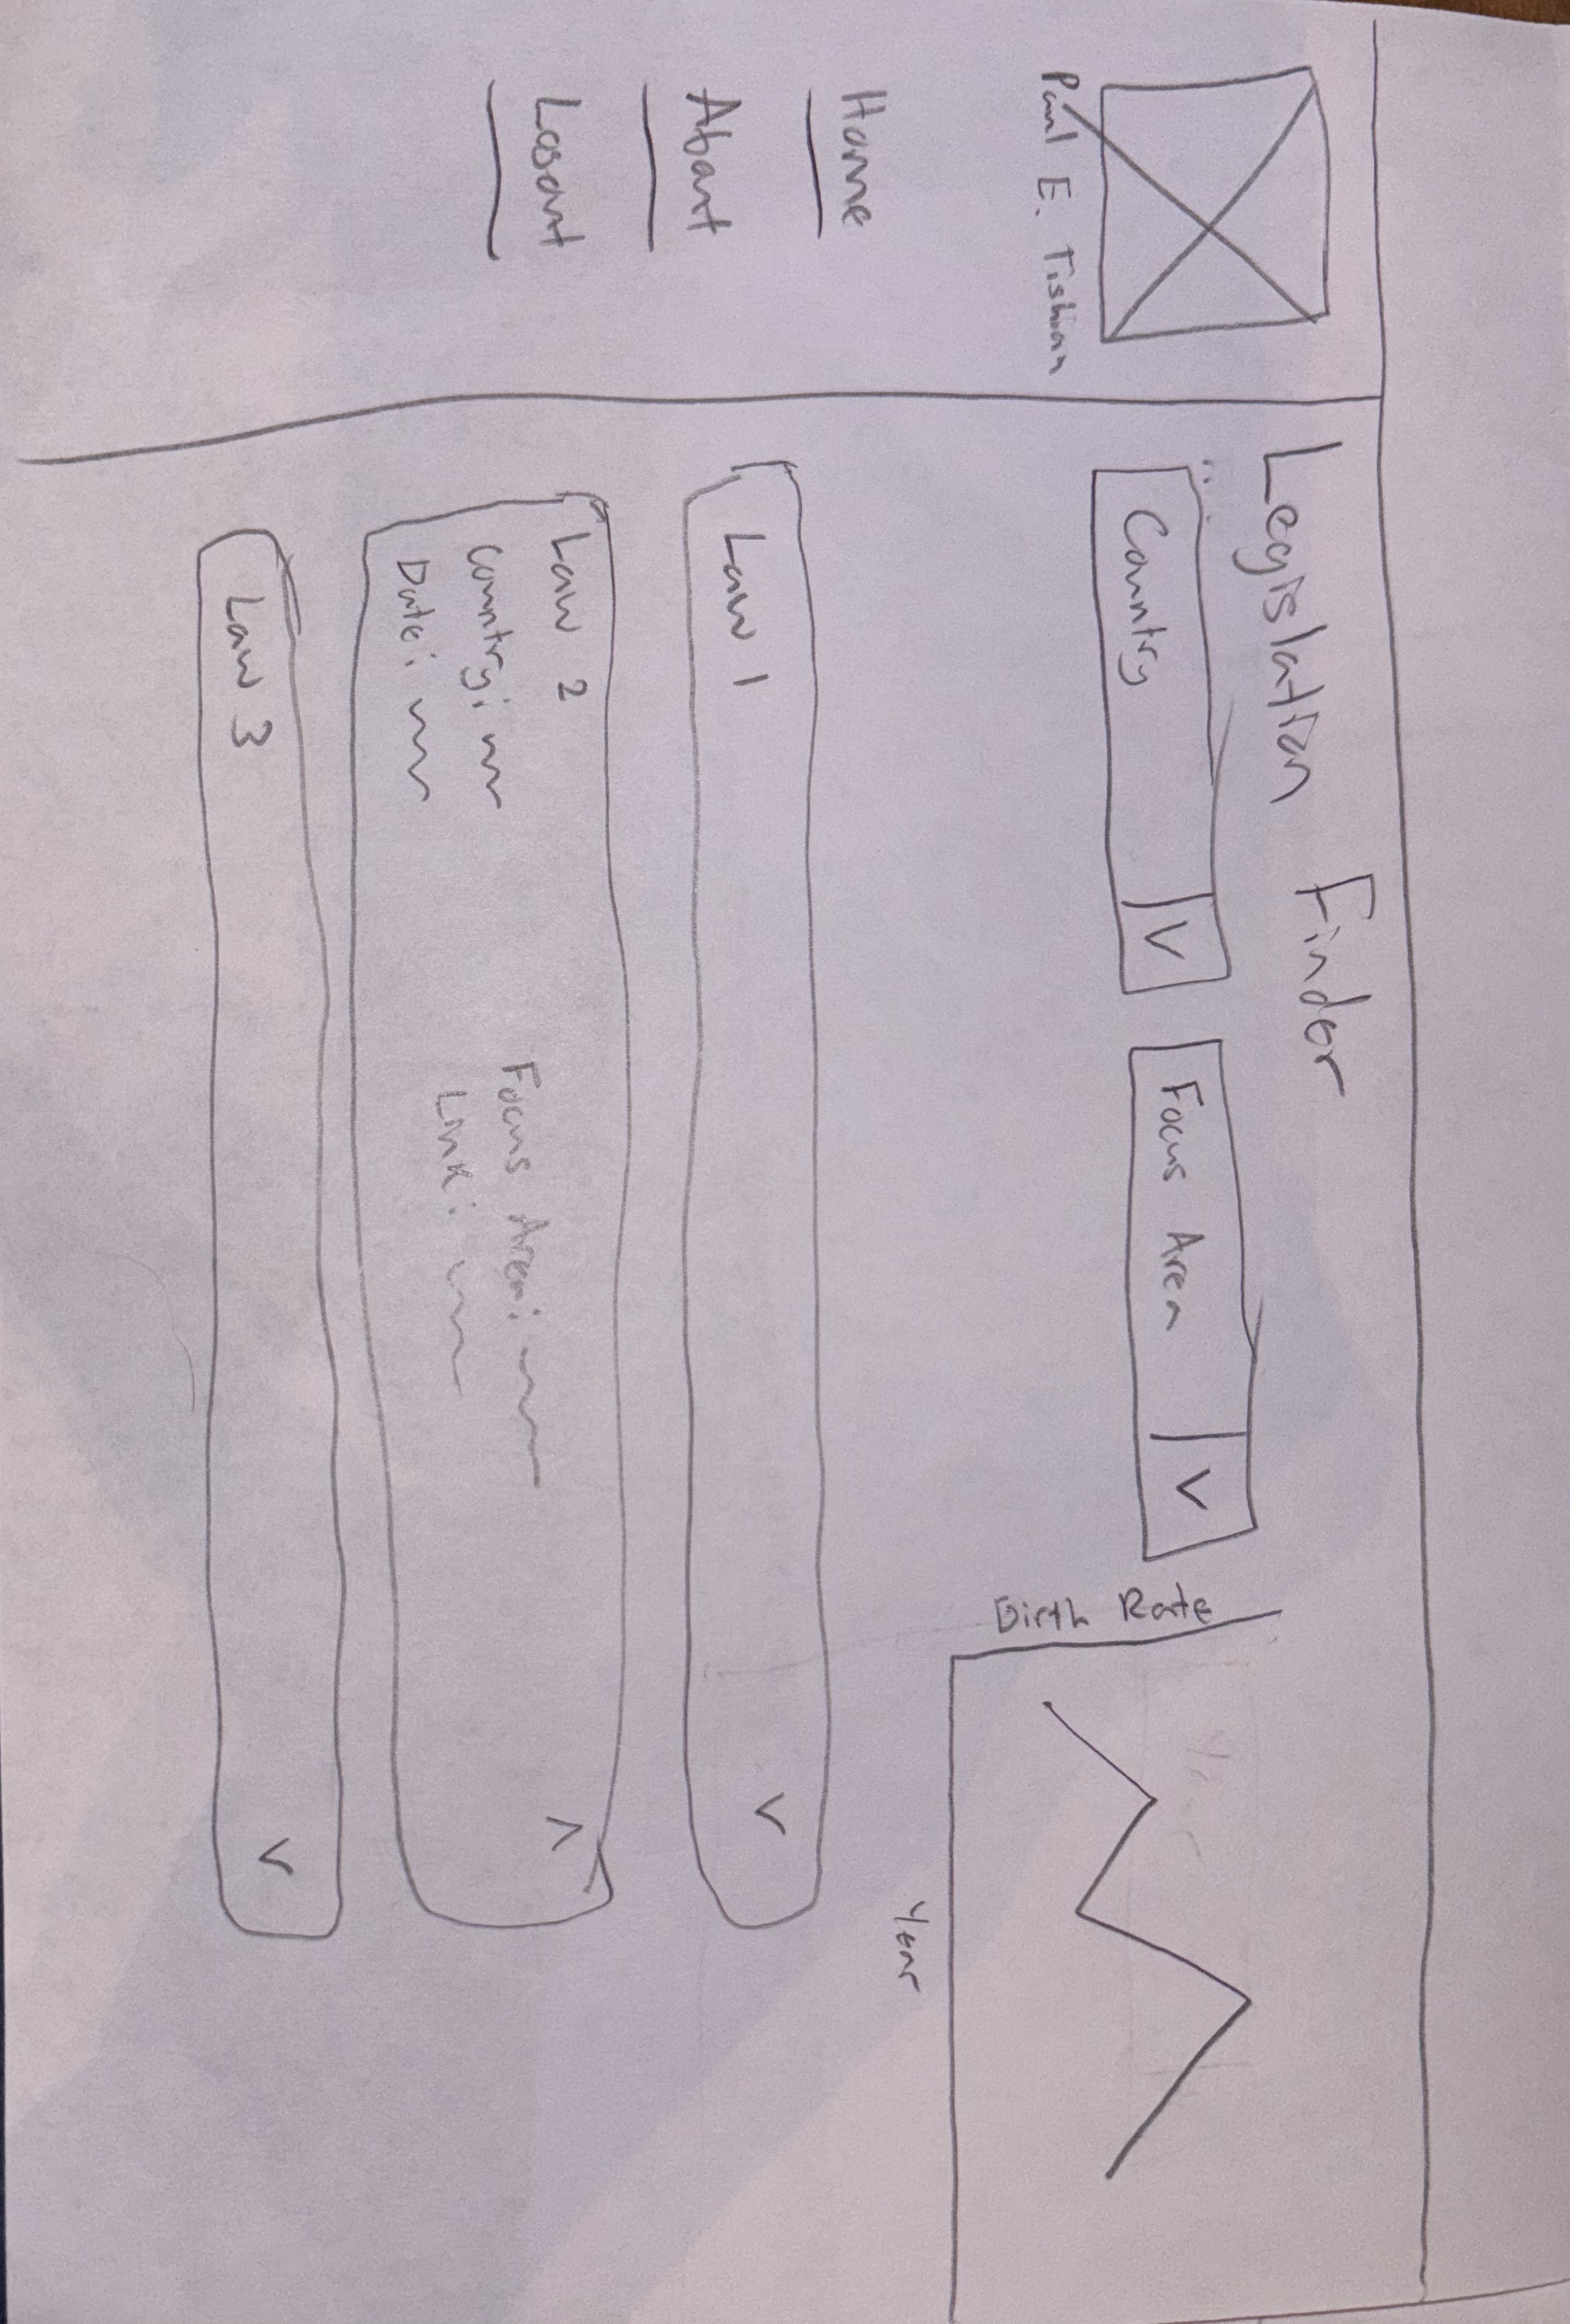 Paul E. Tishian
Home
About
Legislation Finder
Country V
Focus Area V
Birth Rate
Year
Law 1
Law 2
Country:
Focus Area:
Date:
Link:
Law 3